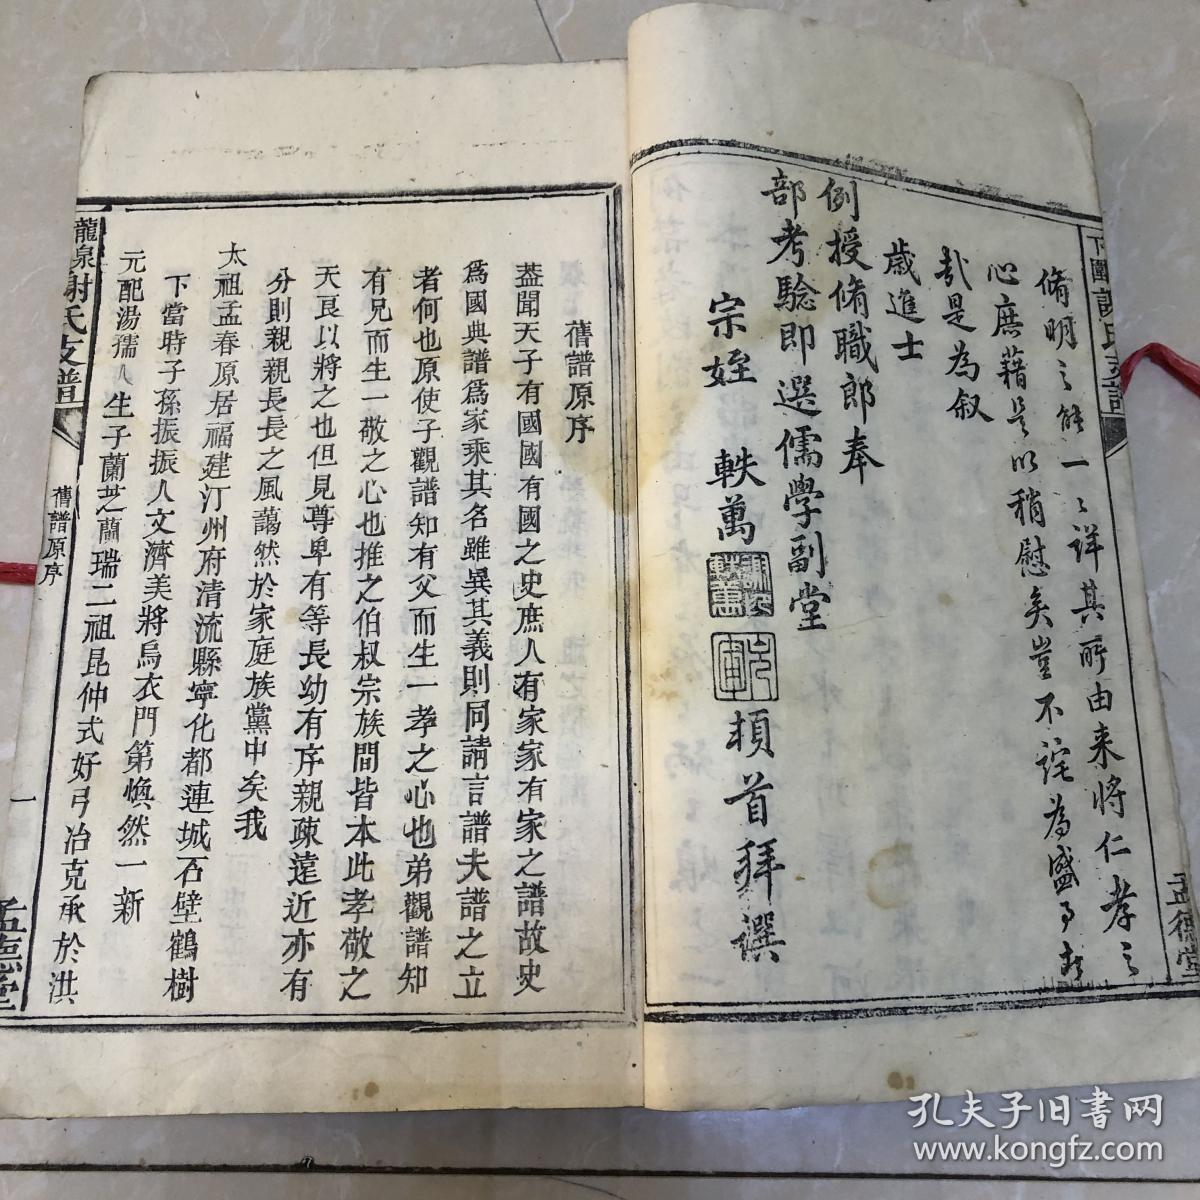 脩明之能一々詳其所由来將仁孝之
心庶藉是以稍慰矣豈不詫為盛事
哉是為叙
歲進士
例授脩職郎奉
部考驗即選儒學副堂
宗姪 軼萬 頓首拜撰
孟德堂
舊譜原序
葢聞天子有國國有國之史庶人有家家有家之譜故史
爲國典譜爲家乘其名雖異其義則同請言譜夫譜之立
者何也原使子觀譜知有父而生一孝之心也弟觀譜知
有兄而生一敬之心也推之伯叔宗族間皆本此孝敬之
天良以將之也但見尊卑有等長幼有序親疎遠近亦有
分則親親長長之風藹然於家庭族黨中矣我
太祖孟春原居福建汀州府清流縣寧化都連城石壁鶴樹
下當時子孫振振人文濟美將烏衣門第煥然一新
元配湯孺人生子蘭芝蘭瑞二祖昆仲式好弓冶克承於洪
龍泉謝氏支譜
舊譜原序
一
孟德堂
孔夫子旧書网
www.kongfz.com